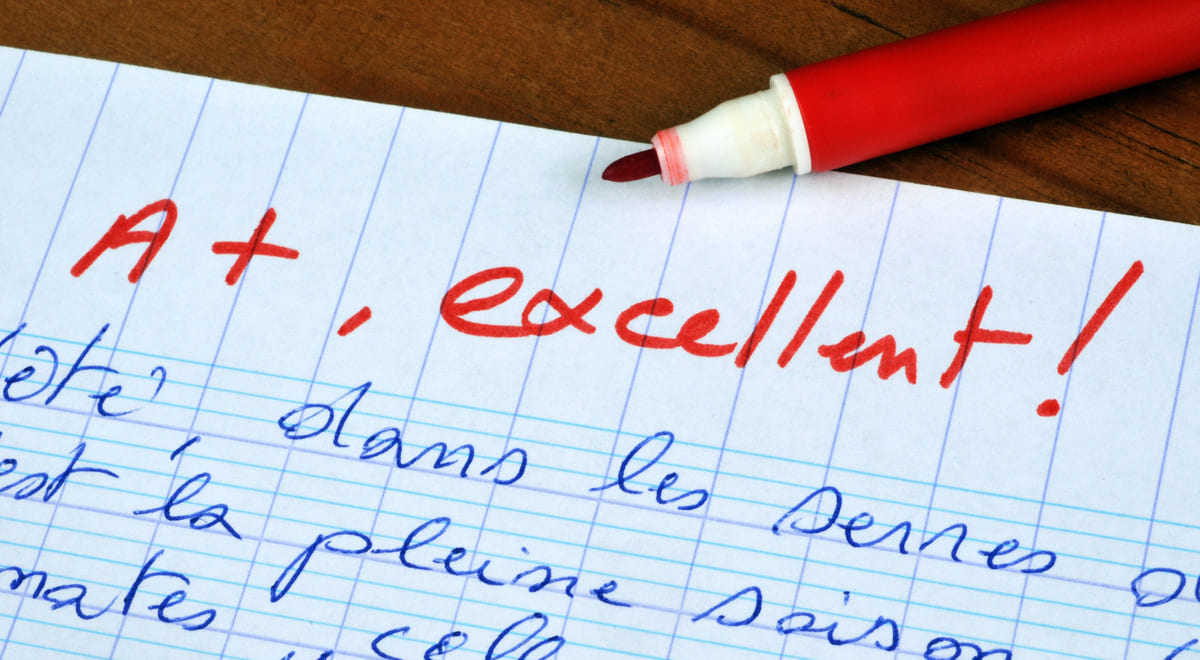 A+, excellent!
été dans les serres
est la pleine saison
mates